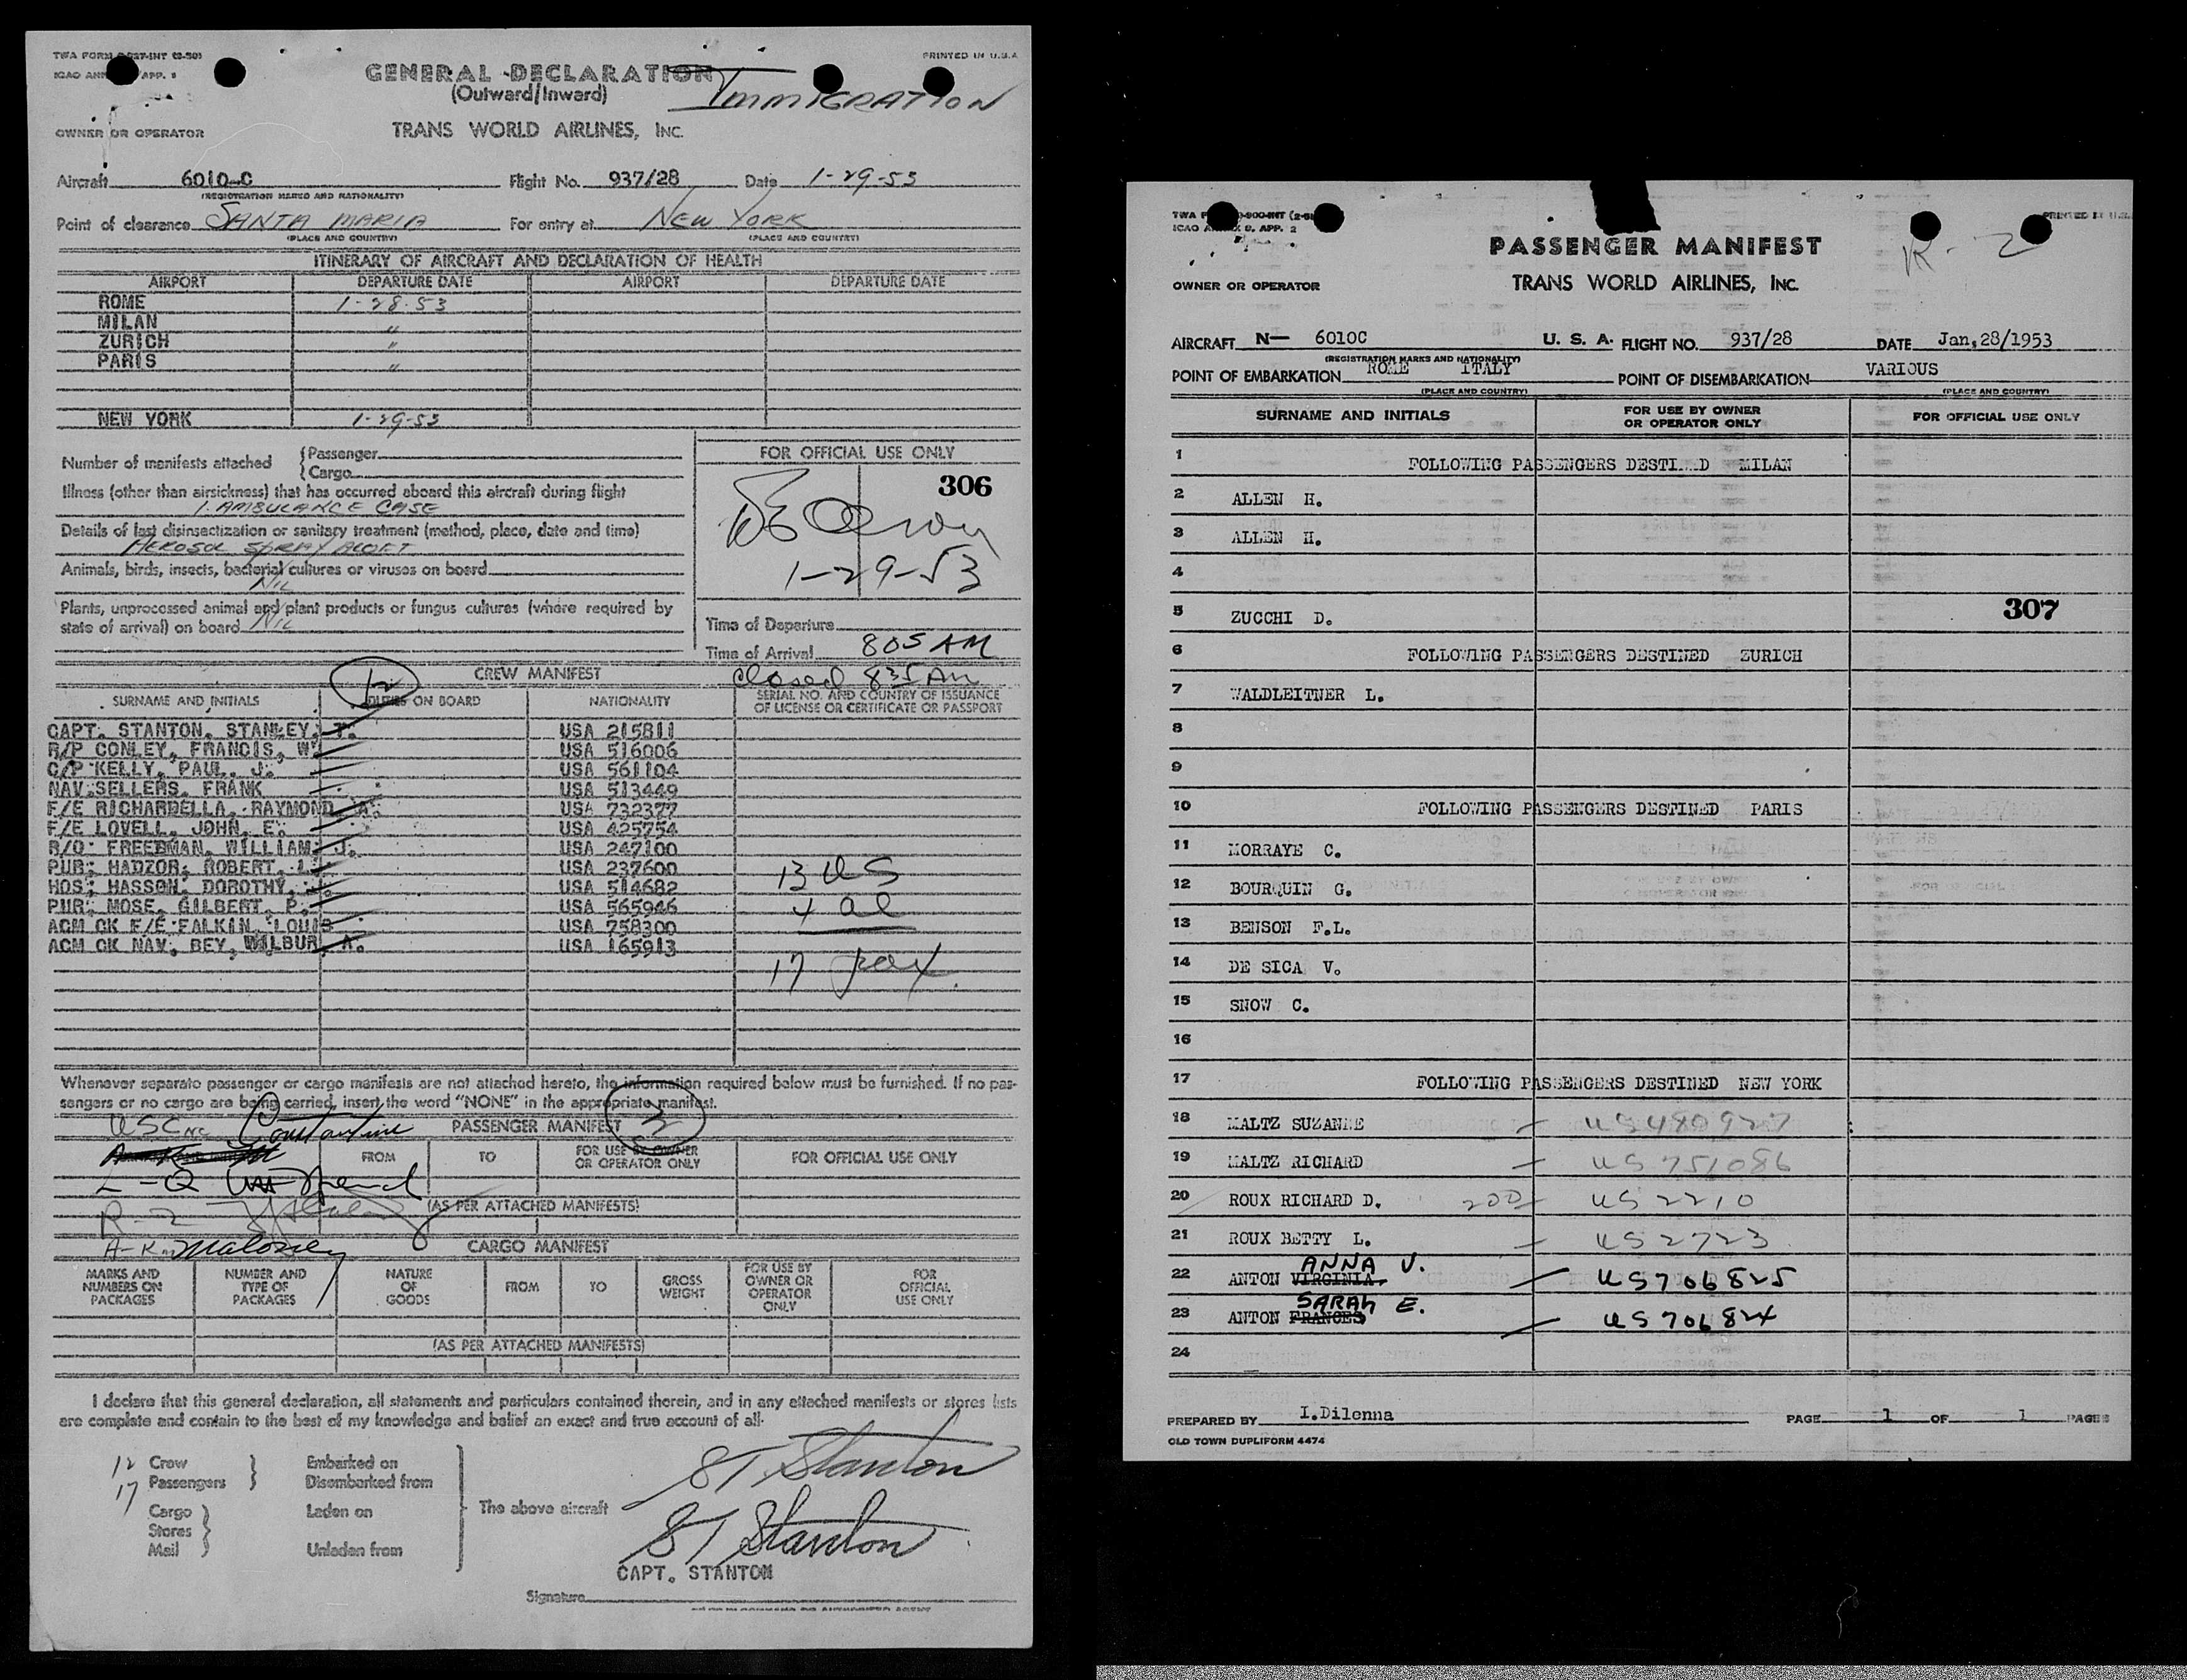 PRINTED IN U.S.A
GENERAL DECLARATION
(Outward/Inward)
IMMIGRATION
OWNER OR OPERATOR TRANS WORLD AIRLINES, INC.
Aircraft 6010-C Flight No. 937/28 Date 1-29-53
(REGISTRATION MARKS AND NATIONALITY)
Point of clearance SANTA MARIA For entry at NEW YORK
(PLACE AND COUNTRY) (PLACE AND COUNTRY)
ITINERARY OF AIRCRAFT AND DECLARATION OF HEALTH
AIRPORT DEPARTURE DATE AIRPORT DEPARTURE DATE
ROME 1-28-53
MILAN "
ZURICH "
PARIS "
NEW YORK 1-29-53
Number of manifests attached { Passenger
Cargo
FOR OFFICIAL USE ONLY
306
1-29-53
Illness (other than airsickness) that has occurred aboard this aircraft during flight
1. AMBULANCE CASE
Details of last disinsectization or sanitary treatment (method, place, date and time)
AEROSOL SPRAY ALOFT
Animals, birds, insects, bacterial cultures or viruses on board
NIL
Plants, unprocessed animal and plant products or fungus cultures (where required by
state of arrival) on board NIL
Time of Departure
Time of Arrival 805 AM
closed 835 AM
12
CREW MANIFEST
SURNAME AND INITIALS DUTIES ON BOARD NATIONALITY SERIAL NO. AND COUNTRY OF ISSUANCE
OF LICENSE OR CERTIFICATE OR PASSPORT
CAPT. STANTON, STANLEY, T. USA 215811
R/P CONLEY, FRANCIS, W. USA 516006
C/P KELLY, PAUL, J. USA 561104
NAV. SELLERS, FRANK USA 513449
F/E RICHARDELLA, RAYMOND A. USA 732377
F/E LOVELL, JOHN, E. USA 425754
R/O FREEDMAN, WILLIAM, J. USA 247100
PUR; HADZOR; ROBERT, L. USA 237600
HOS; HASSON; DOROTHY, J. USA 514682
PUR; MOSE, GILBERT, P. USA 565946
ACM CK F/E FALKIN, LOUIS USA 758300
ACM CK NAV. BEY, WILBUR, A. USA 165913
13 US
4 al
17 pax.
Whenever separate passenger or cargo manifests are not attached hereto, the information required below must be furnished. If no pas-
sengers or no cargo are being carried, insert the word "NONE" in the appropriate manifest.
Constantine
PASSENGER MANIFEST
FROM TO FOR USE BY OWNER
OR OPERATOR ONLY
FOR OFFICIAL USE ONLY
L-Q
R-Z
(AS PER ATTACHED MANIFESTS)
A-K Maloney
CARGO MANIFEST
MARKS AND
NUMBERS ON
PACKAGES
NUMBER AND
TYPE OF
PACKAGES
NATURE
OF
GOODS
FROM
TO
GROSS
WEIGHT
FOR USE BY
OWNER OR
OPERATOR
ONLY
FOR
OFFICIAL
USE ONLY
(AS PER ATTACHED MANIFESTS)
I declare that this general declaration, all statements and particulars contained therein, and in any attached manifests or stores lists
are complete and contain to the best of my knowledge and belief an exact and true account of all-
12 Crew
17 Passengers
Embarked on
Disembarked from
Cargo
Stores
Mail
Laden on
Unladen from
The above aircraft
ST Stanton
ST Stanton
CAPT. STANTON
Signature
PASSENGER MANIFEST
R-Z
OWNER OR OPERATOR TRANS WORLD AIRLINES, INC.
AIRCRAFT N— 6010C U. S. A. FLIGHT NO. 937/28 DATE Jan,28/1953
(REGISTRATION MARKS AND NATIONALITY)
POINT OF EMBARKATION ROME ITALY POINT OF DISEMBARKATION VARIOUS
(PLACE AND COUNTRY) (PLACE AND COUNTRY)
SURNAME AND INITIALS FOR USE BY OWNER
OR OPERATOR ONLY FOR OFFICIAL USE ONLY
1 FOLLOWING PASSENGERS MILAN
2 ALLEN H.
3 ALLEN H.
4
5 ZUCCHI D. 307
6 FOLLOWING PASSENGERS DESTINED ZURICH
7 WALDLEITNER L.
8
9
10 FOLLOWING PASSENGERS DESTINED PARIS
11 MORRAYE C.
12 BOURQUIN G.
13 BENSON F.L.
14 DE SICA V.
15 SNOW C.
16
17 FOLLOWING PASSENGERS DESTINED NEW YORK
18 MALTZ SUZANNE — US 480927
19 MALTZ RICHARD — US 751086
20 ROUX RICHARD D. US 2210
21 ROUX BETTY L. — US 2723
ANNA V.
22 ANTON VIRGINIA. — US 706825
SARAH E.
23 ANTON FRANCES — US 706824
24
PREPARED BY I.Dilenna PAGE 1 OF 1 PAGES
OLD TOWN DUPLIFORM 4474